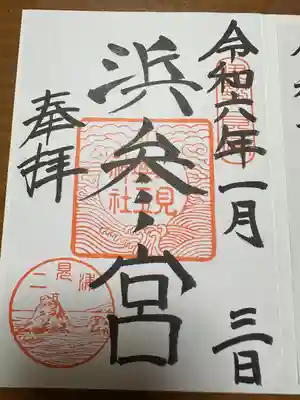 令和六年一月三日
浜参宮
二見興玉神社
奉拝
二見浦